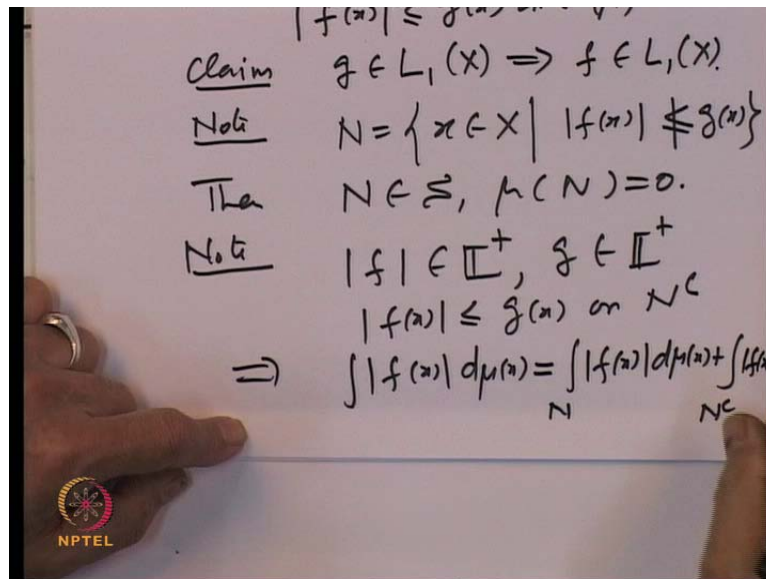 |f(x)| ≤ g(x) on
Claim g ∈ L₁(X) ⇒ f ∈ L₁(X).
Note N = {x ∈ X | |f(x)| ≰ g(x)}
Then N ∈ S, μ(N) = 0.
Note |f| ∈ 𝕃⁺, g ∈ 𝕃⁺
|f(x)| ≤ g(x) on Nᶜ
⇒ ∫|f(x)| dμ(x) = ∫|f(x)| dμ(x) + ∫|f(x)
N Nᶜ
NPTEL